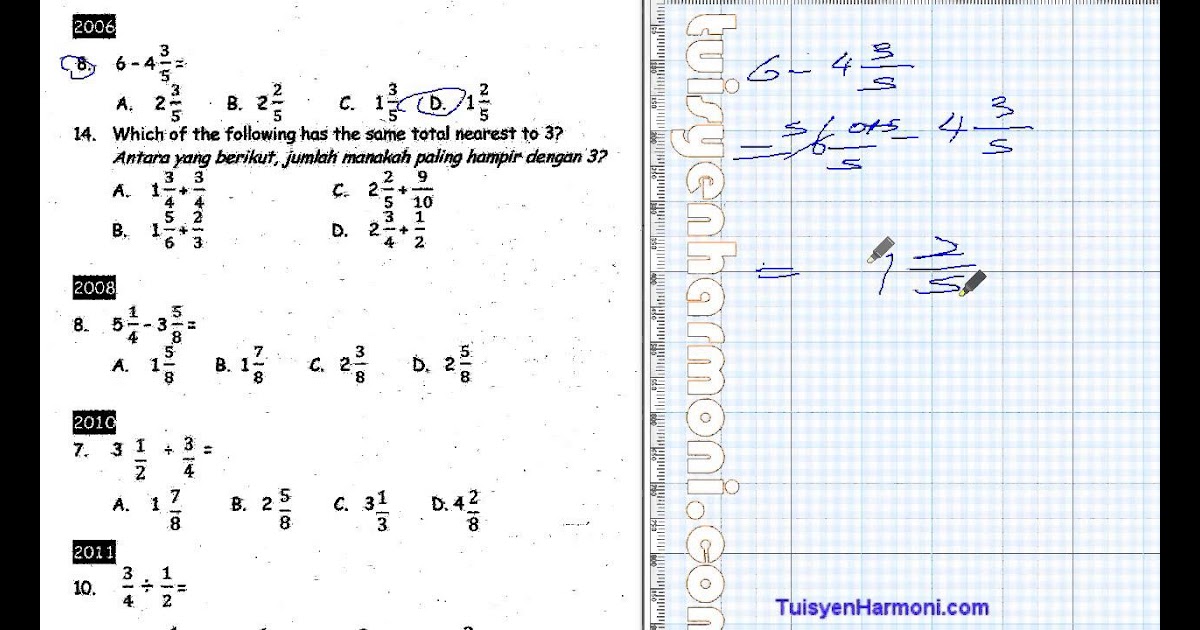 2006
8. 6 - 4 3/5 =
A. 2 3/5 B. 2 2/5 C. 1 3/5 D. 1 2/5
14. Which of the following has the same total nearest to 3?
Antara yang berikut, jumlah manakah paling hampir dengan 3?
A. 1 3/4 + 3/4 C. 2 2/5 + 9/10
B. 1 5/6 + 2/3 D. 2 3/4 + 1/2
2008
8. 5 1/4 - 3 5/8 =
A. 1 5/8 B. 1 7/8 C. 2 3/8 D. 2 5/8
2010
7. 3 1/2 ÷ 3/4 =
A. 1 7/8 B. 2 5/8 C. 3 1/3 D. 4 2/8
2011
10. 3/4 ÷ 1/2 =
6 - 4 3/5
= 5 6 0+5/5 - 4 3/5
= 1 2/5
tuisyenharmoni.com
TuisyenHarmoni.com